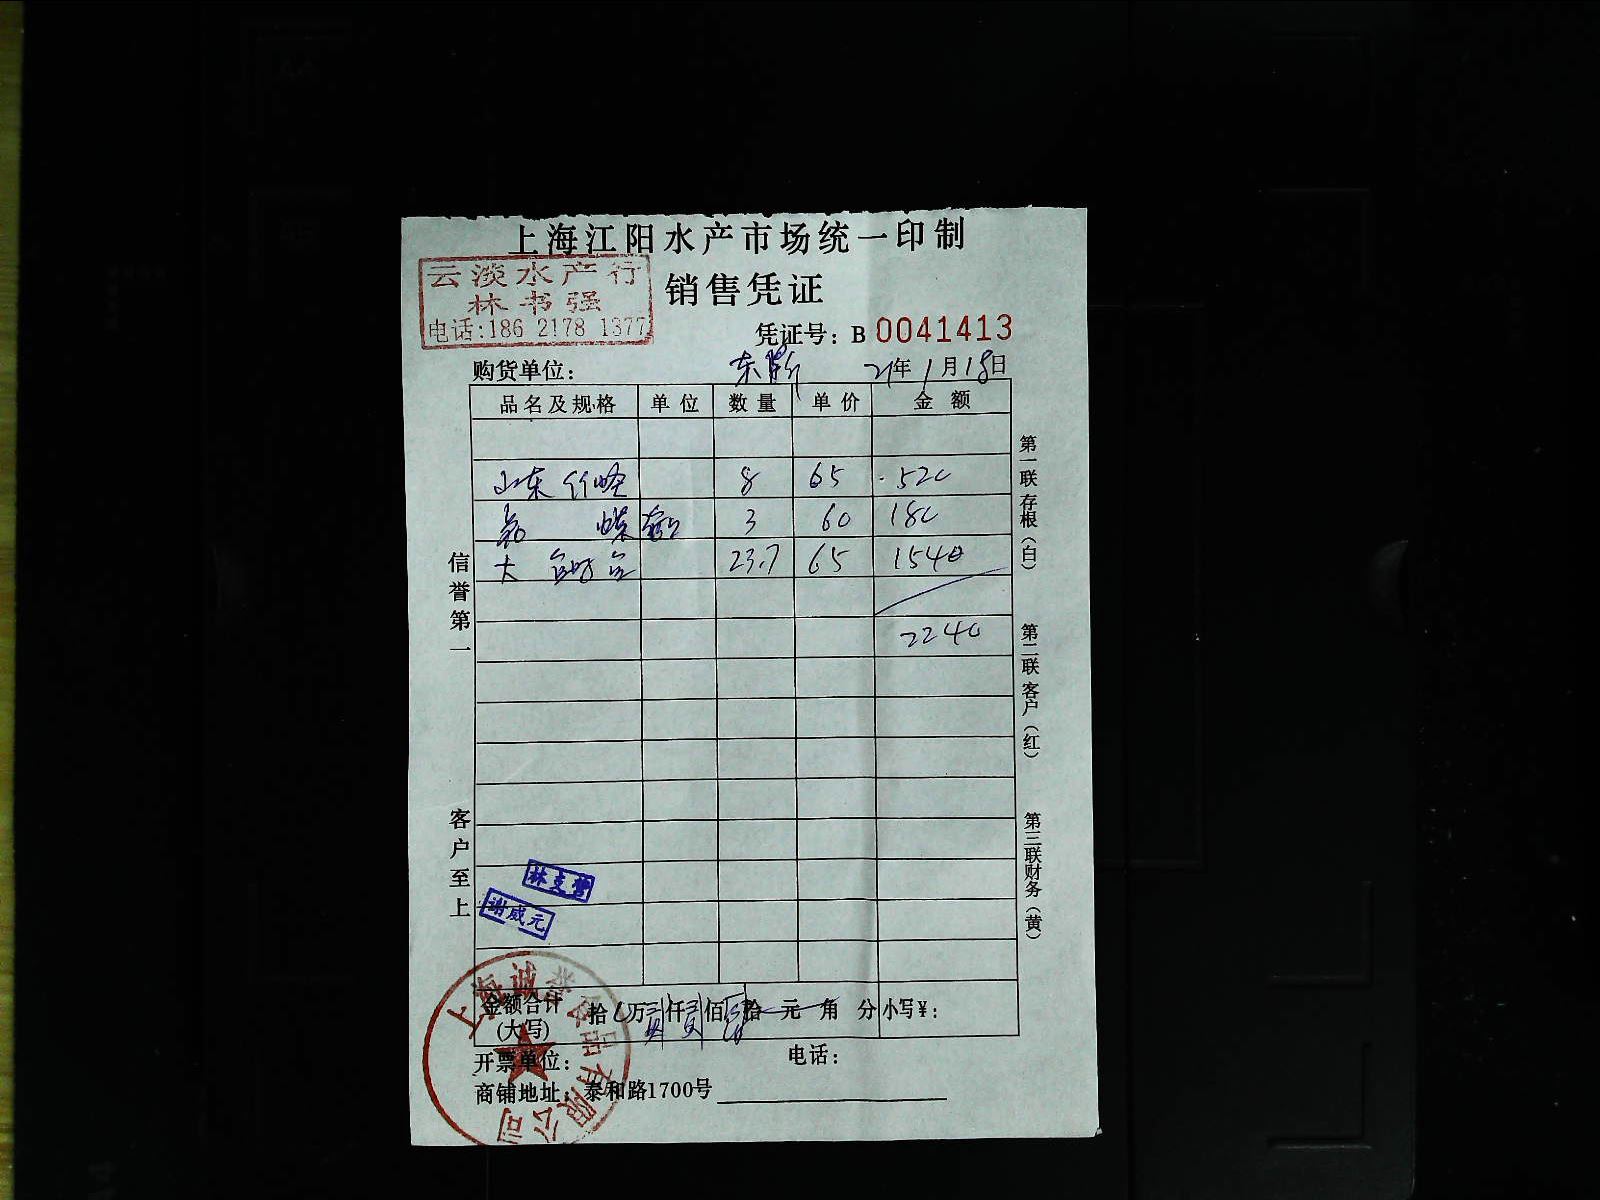 上海江阳水产市场统一印制
云淡水产行
林书强
电话:186 2178 1377
销售凭证
凭证号: B 0041413
购货单位: 东 21年1月18日
品名及规格 单位 数量 单价 金额
山东竹蛏 8 65 520
3 60 180
大 23.7 65 1540
2240
信誉第一
客户至上
第一联存根(白)
第二联客户(红)
第三联财务(黄)
谢成元
上海诚誉食品有限公司
金额合计(大写) 拾 万贰仟贰佰肆拾元角分 小写¥:
开票单位: 电话:
商铺地址: 泰和路1700号